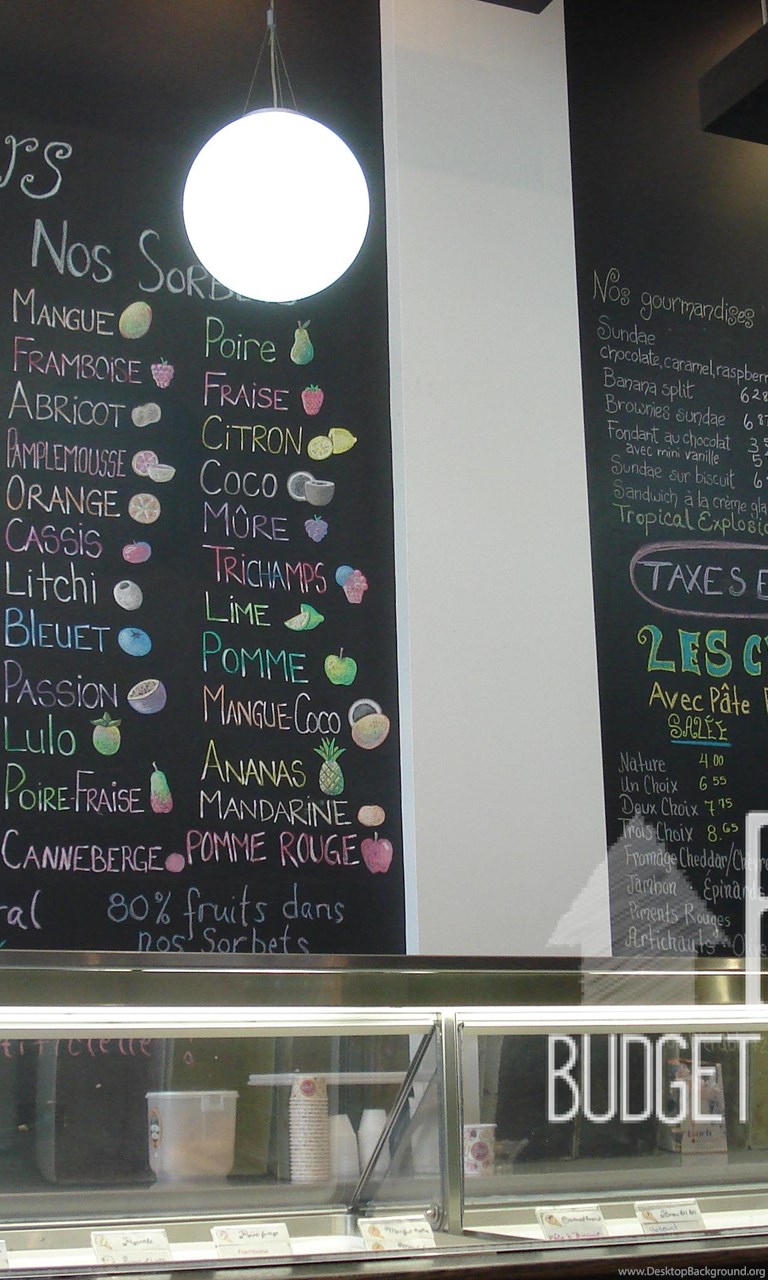 rs
Nos Sorbe
Mangue
Framboise
Abricot
Pamplemousse
Orange
Cassis
Litchi
Bleuet
Passion
Lulo
Poire-Fraise
Canneberge
Poire
Fraise
Citron
Coco
Mûre
Trichamps
Lime
Pomme
Mangue-Coco
Ananas
Mandarine
Pomme Rouge
ral
80% fruits dans
nos Sorbets
Nos gourmandises
Sundae
chocolate, caramel, raspberr
Banana split 6 28
Brownies sundae 6 87
Fondant au chocolat 3 5
avec mini vanille 5
Sundae sur biscuit 6
Sandwich à la crème gla
Tropical Explosio
TAXES E
LES C
Avec Pâte
SALÉE
Nature 4 00
Un Choix 6 55
Deux Choix 7 75
Trois Choix 8 65
Fromage Cheddar/Chèvr
Jambon Épinards
Piments Rouges
Artichauts Olive
BUDGET
www.DesktopBackground.org